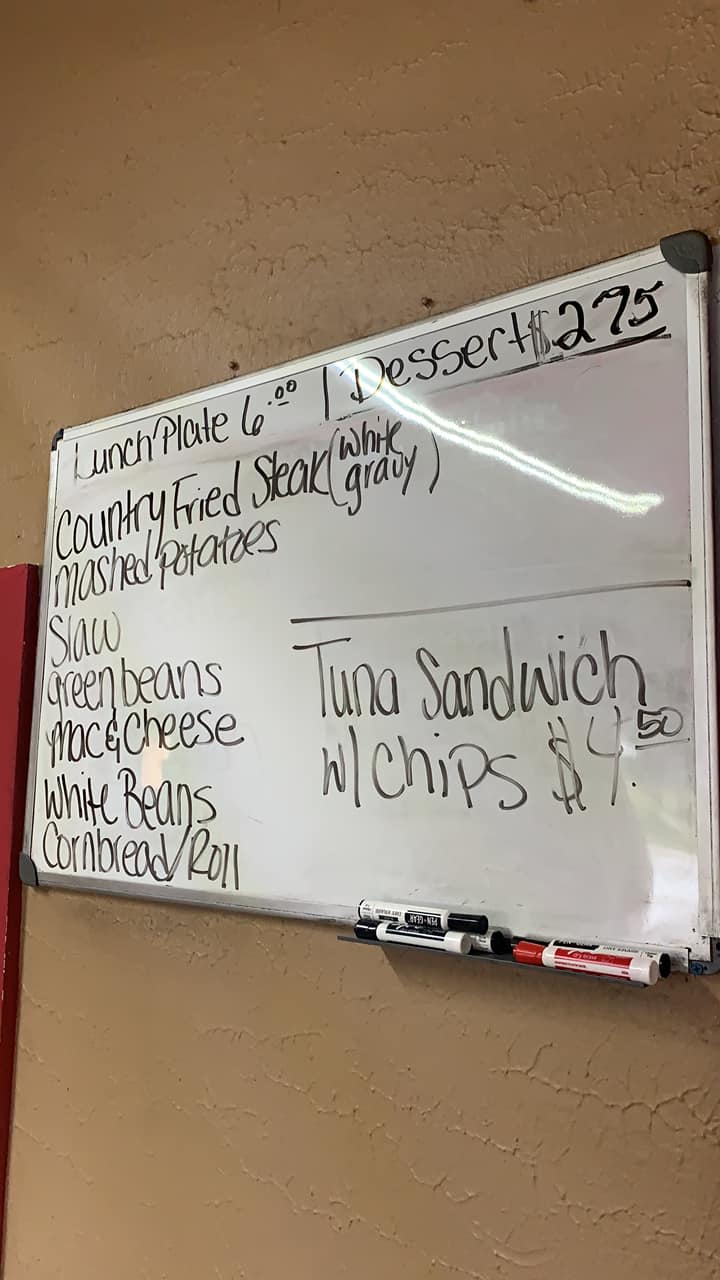 Lunch Plate 6.00 | Dessert $2.75
Country Fried Steak (white gravy)
mashed potatoes
Slaw
green beans
Mac & Cheese
White Beans
Cornbread/Roll
Tuna Sandwich
w/ Chips $4.50
PEN+GEAR